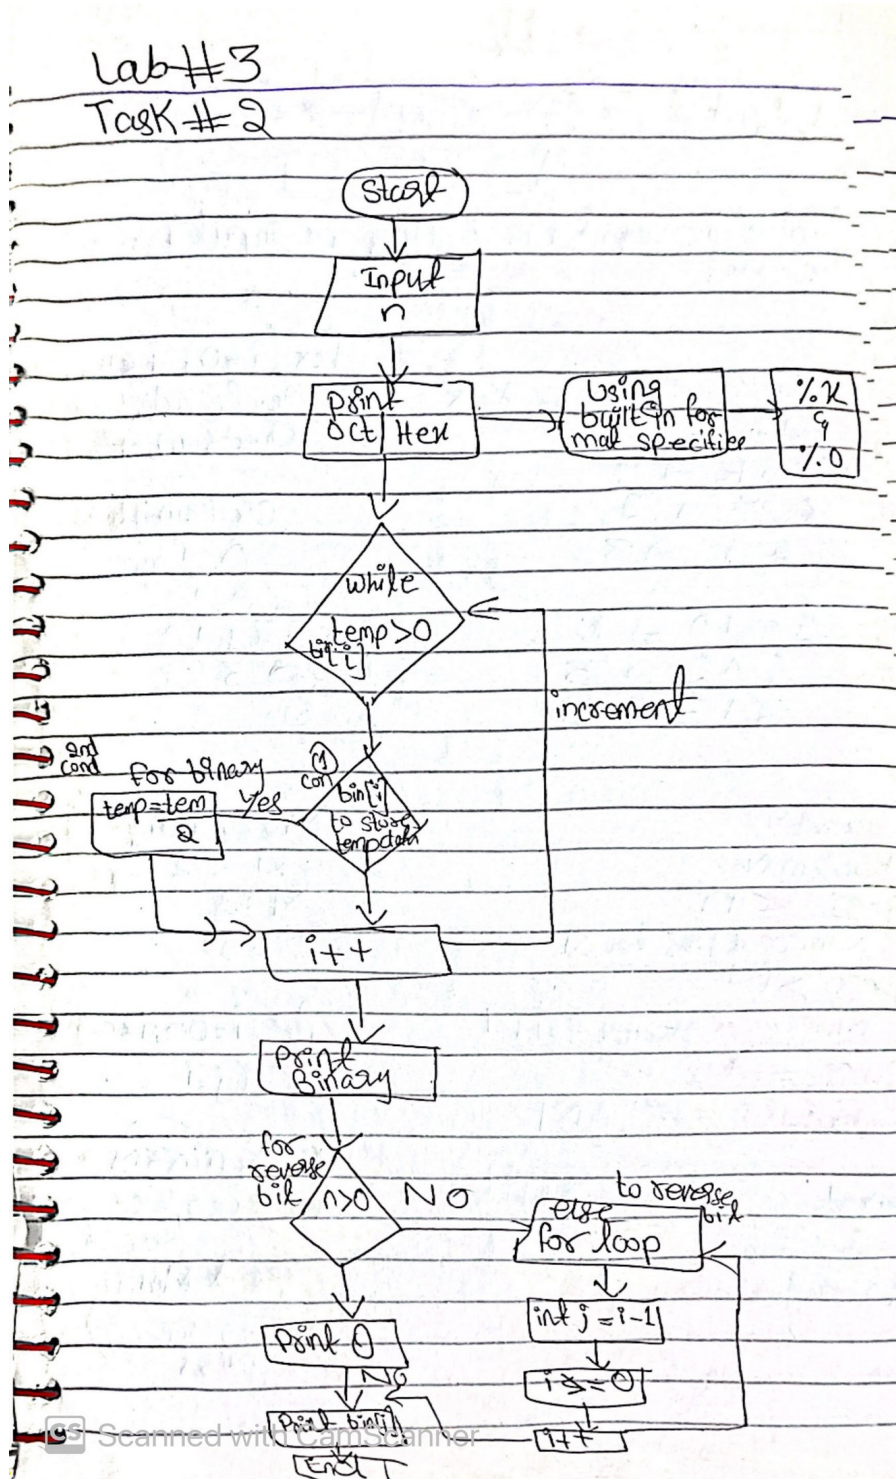 Lab #3
Task # 2
Start
Input
n
Print
Oct Hex
Using
built in for
mat specifier
%X
&
%O
while
temp>0
bit[i]
increment
2nd
cond
for binary
temp=tem
2
Yes
1
con
bin[i]
to store
temp data
i++
Print
Binary
for
reverse
bit
n>0
NO
to reverse
bit
else
for loop
int j = i-1
Print 0
No
Print bin[j]
i++
End
CS Scanned with CamScanner